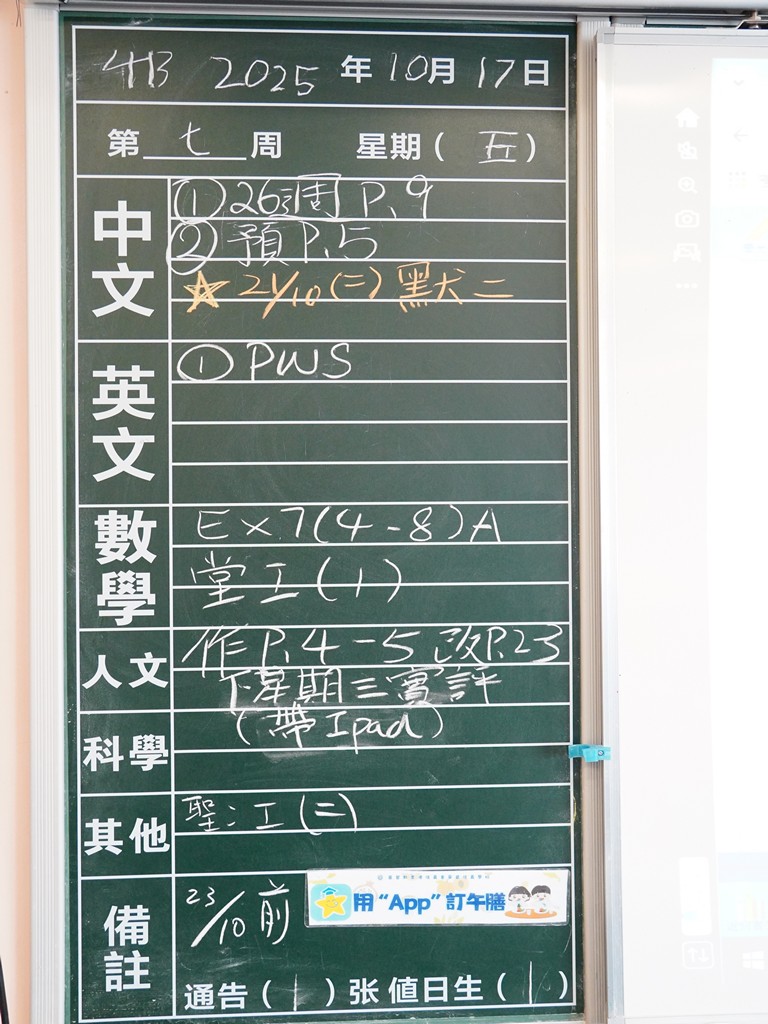 4B 2025 年 10月 17日
第 七 周 星期( 五 )
中文
① 26週 P.9
② 預 P.5
☆ 21/10 (二) 默二
英文
① PWS
數學
Ex 7(4-8)A
堂工(1)
人文
作 P.4-5 改 P.23
下星期三實評
(帶 Ipad)
科學
其他
聖:工(二)
備註
23/10 前
用“App”訂午膳
通告( 1 )张 值日生( )